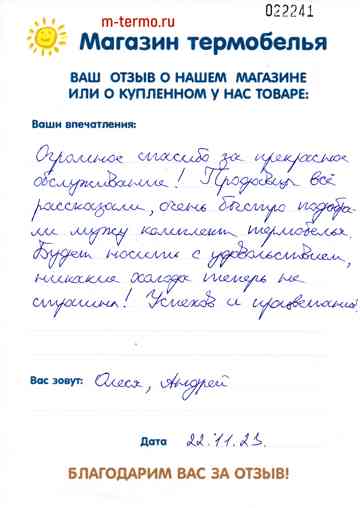 022241
m-termo.ru
Магазин термобелья
ВАШ ОТЗЫВ О НАШЕМ МАГАЗИНЕ
ИЛИ О КУПЛЕННОМ У НАС ТОВАРЕ:
Ваши впечатления:
Огромное спасибо за прекрасное
обслуживание! Продавцы всё
рассказали, очень быстро подобра-
ли мужу комплект термобелья.
Будет носить с удовольствием,
никакие холода теперь не
страшны! Успехов и процветания!
Вас зовут: Олеся, Андрей
Дата 22.11.23.
БЛАГОДАРИМ ВАС ЗА ОТЗЫВ!